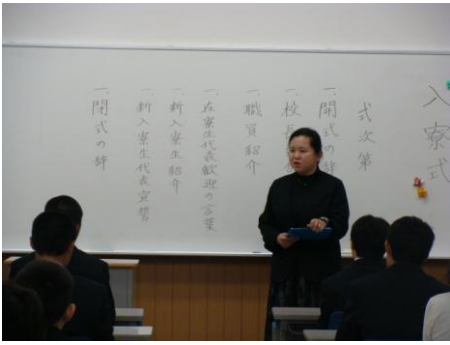 入寮式
式次第
一、開式の辞
一、校長
一、職員紹介
一、在寮生代表歓迎の言葉
一、新入寮生紹介
一、新入寮生代表宣誓
一、閉式の辞